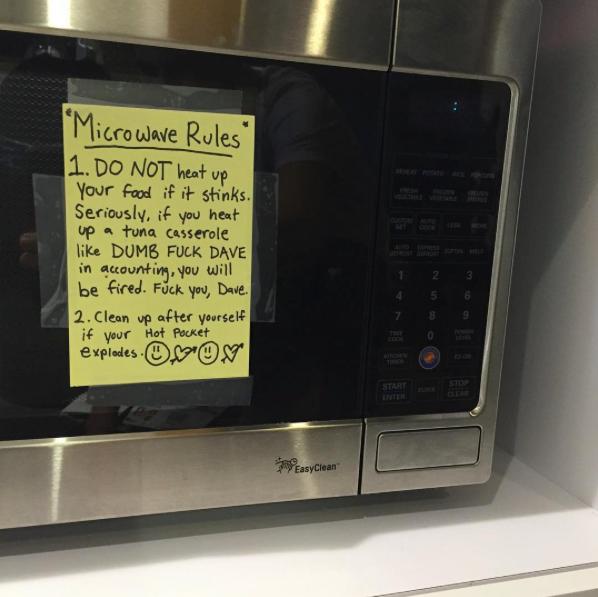 *Microwave Rules*
1. DO NOT heat up
your food if it stinks.
Seriously, if you heat
up a tuna casserole
like DUMB FUCK DAVE
in accounting, you will
be fired. Fuck you, Dave.
2. Clean up after yourself
if your Hot Pocket
explodes.
:
REHEAT POTATO RICE POPCORN
FRESH VEGETABLE FROZEN VEGETABLE
CUSTOM SET AUTO COOK LESS MORE
AUTO DEFROST EXPRESS DEFROST SOFTEN MELT
1 2 3
4 5 6
7 8 9
TIME COOK 0 POWER LEVEL
KITCHEN TIMER EZ-ON
START ENTER CLOCK STOP CLEAR
EasyClean™